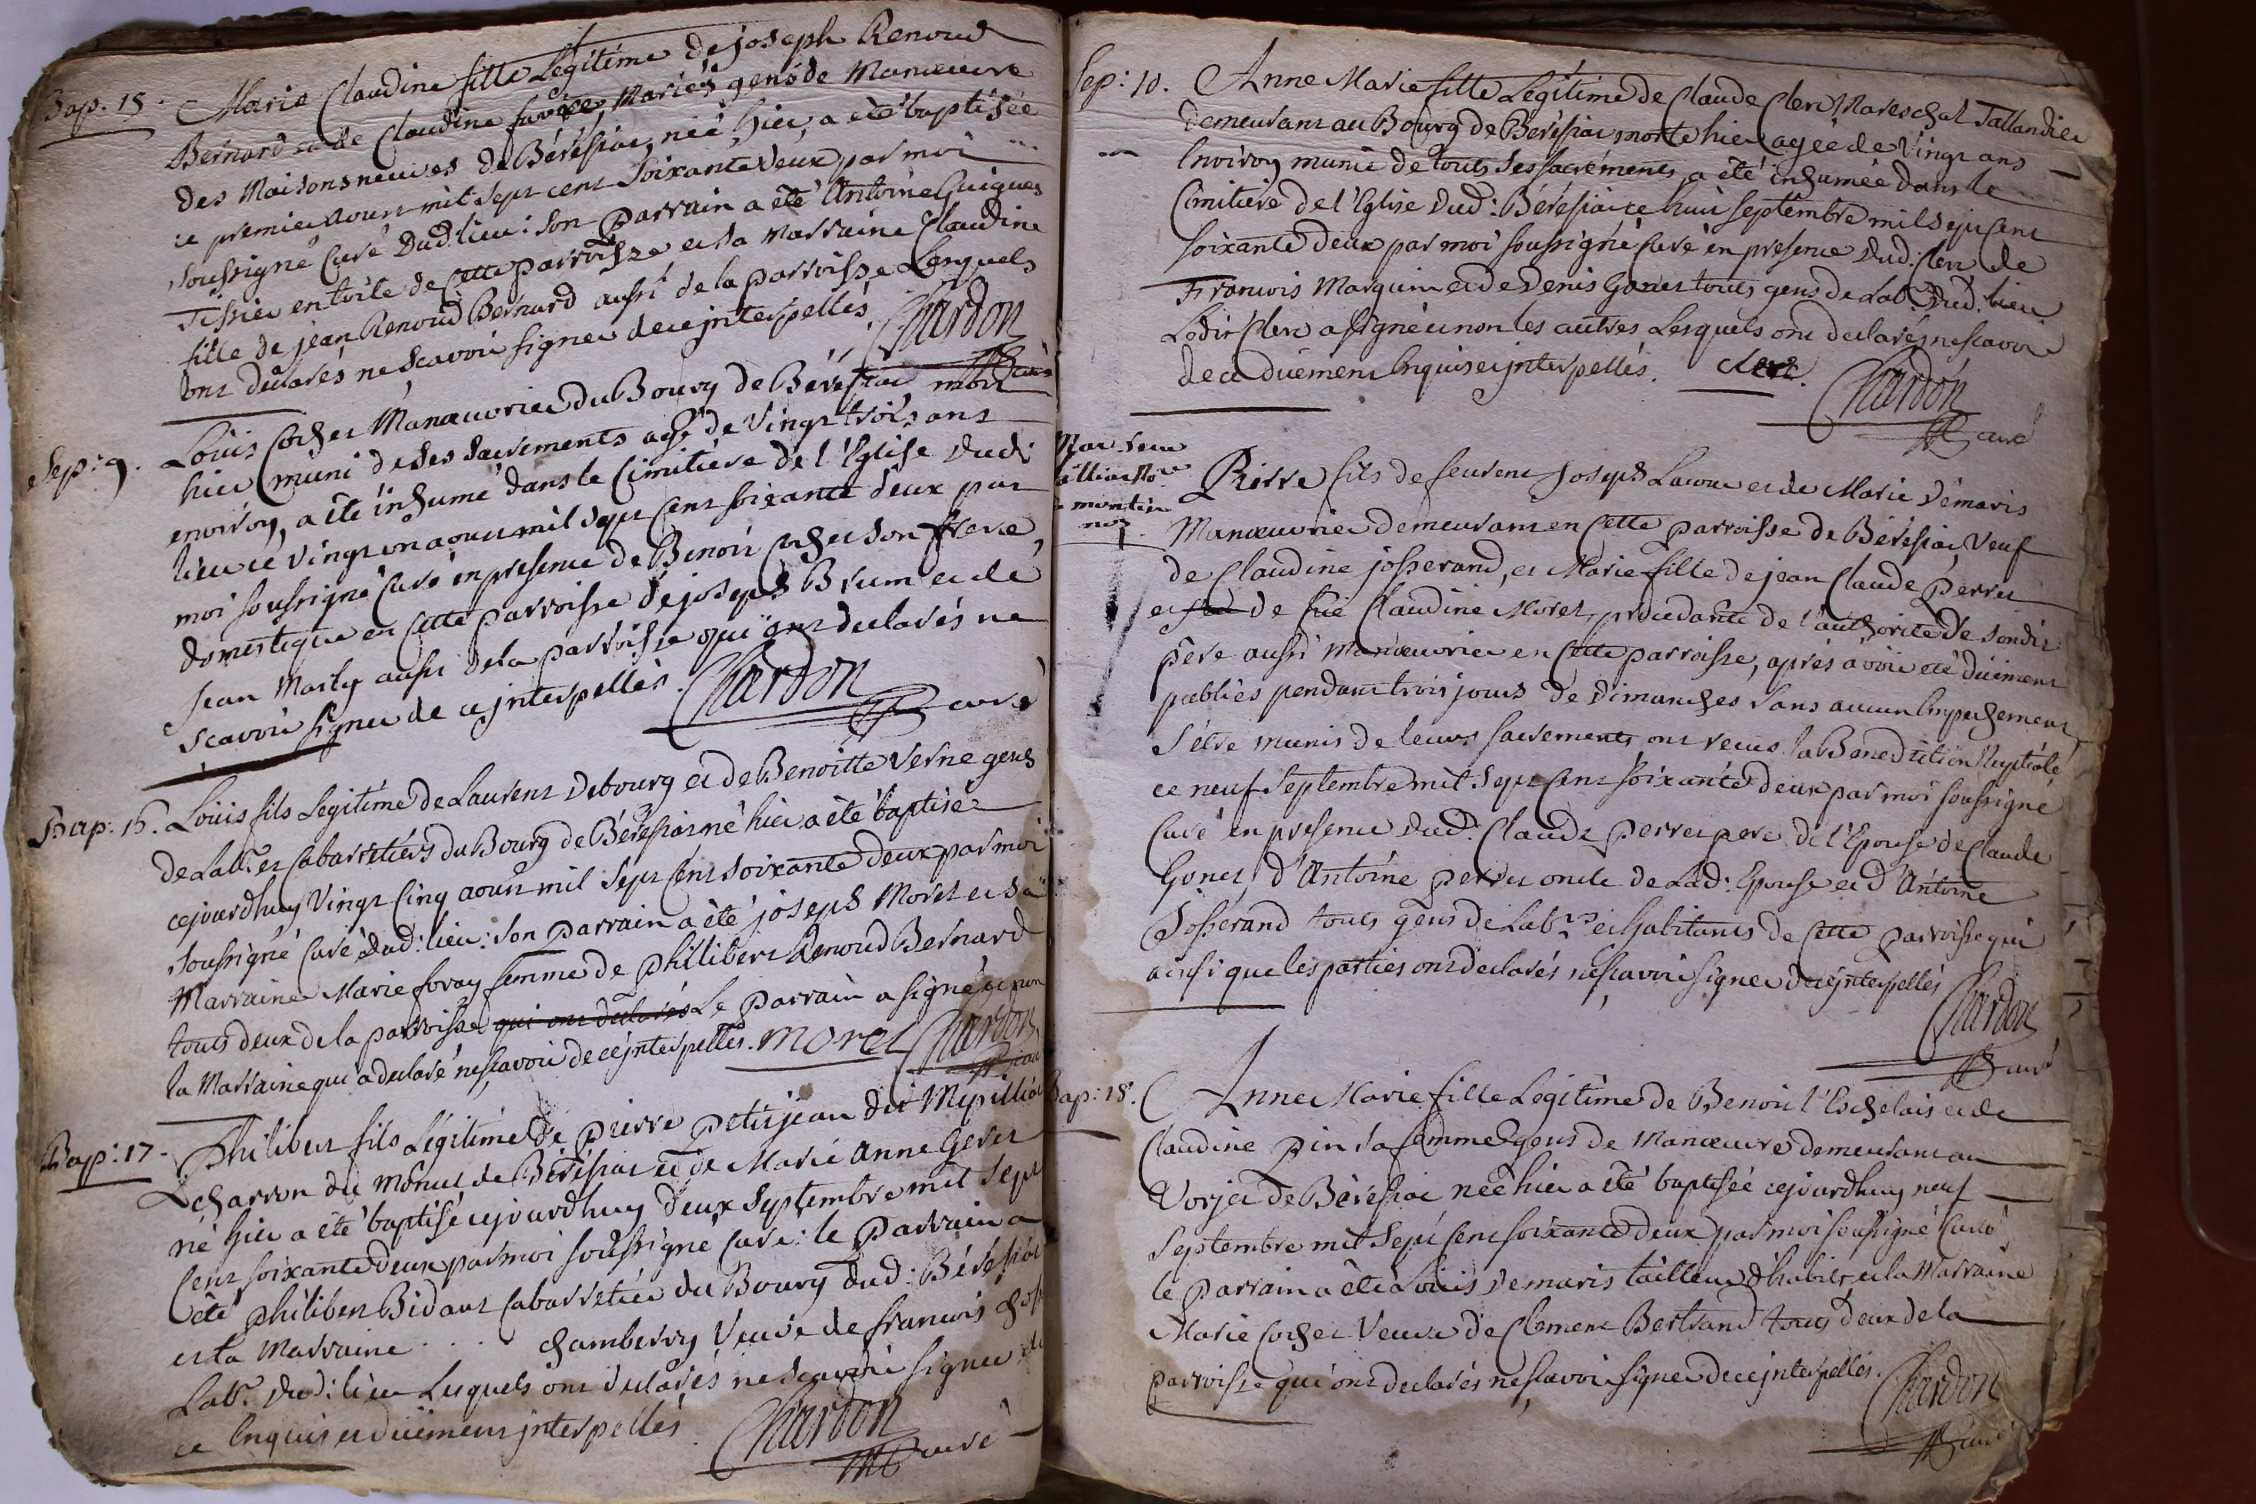 Bap. 15. Marie Claudine fille Légitime de joseph Renoud
Bernard et de Claudine favre, Mariés gens de Manœuvre
des Maisons neuves de Béréssiat, née hier, a été baptisée
ce premier aoust mil sept cent soixante deux par moi
soussigné Curé dud. lieu: son parrain a été Antoine Guigues
Tissier en toile de cette parroisse et sa marraine Claudine
fille de jean Renoud Bernard aussi de la parroisse Lesquels
ont déclarés ne scavoir signer de ce jnterpellés. Chardon
curé
Sep: 9. Louis Cochet Manœuvrier du Bourg de Béréssiat mort
hier muni de ses sacrements agé de vingt trois ans
environ, a été inhumé dans le Cimitière de l'Eglise dud:
lieu ce vingt un aoust mil sept cent soixante deux par
moi soussigné Curé en presence de Benoit Cochet son frere,
domestique en cette parroisse de joseph Brun et de
jean Marly aussi de la parroisse qui ont declarés ne
scavoir signer de ce jnterpellés. Chardon
curé
Bap: 16. Louis fils Legitime de Laurent Debourg et de Benoitte verne gens
de Labr. et Cabarretiers du Bourg de Béréssiat né hier a été baptisé
cejourdhuy vingt cinq aoust mil sept cent soixante deux par moi
soussigné Curé dud: lieu: son parrain a été joseph Morel et sa
Marraine Marie foray femme de philibert Renoud Bernard
touts deux de la parroisse qui ont declarés Le parrain a signé et non
la Marraine qui a declaré ne scavoir de ce jnterpellés. morel Chardon
curé
Bap: 17. Philibert fils Légitime de pierre petitjean dit Mipillial
charron du mônet de Béréssiat et de Marie Anne Geret
né hier a été baptisé cejourdhuy deux septembre mil sept
cent soixante deux par moi soussigné Curé: le parrain a
été philibert Bidaut Cabarretier du Bourg dud: Béréssiat
et la marraine . . . chamberry veuve de francois
Labr. dud: lieu Lesquels ont declarés ne scavoir signer de
ce Enquis et düement jnterpellés. Chardon
curé
Sep: 10. Anne Marie fille Légitime de Claude Clerc Mareschal Tallandier
demeurant au Bourg de Béréssiat morte hier agée de vingt ans
Environ munie de touts ses sacréments, a été inhumée dans le
Cimitière de l'Eglise dud: Béréssiat ce huit septembre mil sept cent
soixante deux par moi soussigné Curé en presence dud: Clerc de
Francois Marguin et de Denis Gonet touts gens de Labr. dud. lieu.
Ledit Clerc a signé et non les autres Lesquels ont declarés ne scavoir
de ce düement Enquis et jnterpellés. Clerc. Chardon
curé
Mar.
Pierre fils de feu rent joseph Lacour et de Marie Démaris
Manœuvrier demeurant en Cette parroisse de Béréssiat veuf
de Claudine josserand, et Marie fille de jean Claude Perret
et de fue Claudine Moret, procedante de l'authorité de sondit
père aussi manœuvrier en cette parroisse, après avoir été düement
publiés pendant trois jours de dimanches sans aucun Empechement,
s'être munis de leurs sacrements ont recus la Benediction Nuptiale
ce neuf septembre mil sept cent soixante deux par moi soussigné
Curé en presence dud: Claude perret pere de l'Epouse de Claude
Gonet, d'Antoine perret oncle de Lad: Epouse et d'Antoine
Josserand touts gens de Labrs. et habitants de Cette parroisse qui
ainsi que les parties ont declarés ne scavoir signer de ce jnterpellés
Chardon
curé
Bap: 18. Anne Marie fille Legitime de Benoit l'Eschelais et de
Claudine pin sa femme gens de Manœuvre demeurant au
Vorjet de Béréssiat née hier a été baptisée cejourdhuy neuf
septembre mil sept cent soixante deux par moi soussigné Curé
le parrain a été Louis Demaris tailleur d'habits et la Marraine
Marie Cochet veuve de Clement Bertrand touts deux de la
parroisse qui ont declarés ne scavoir signer de ce jnterpellés. Chardon
curé